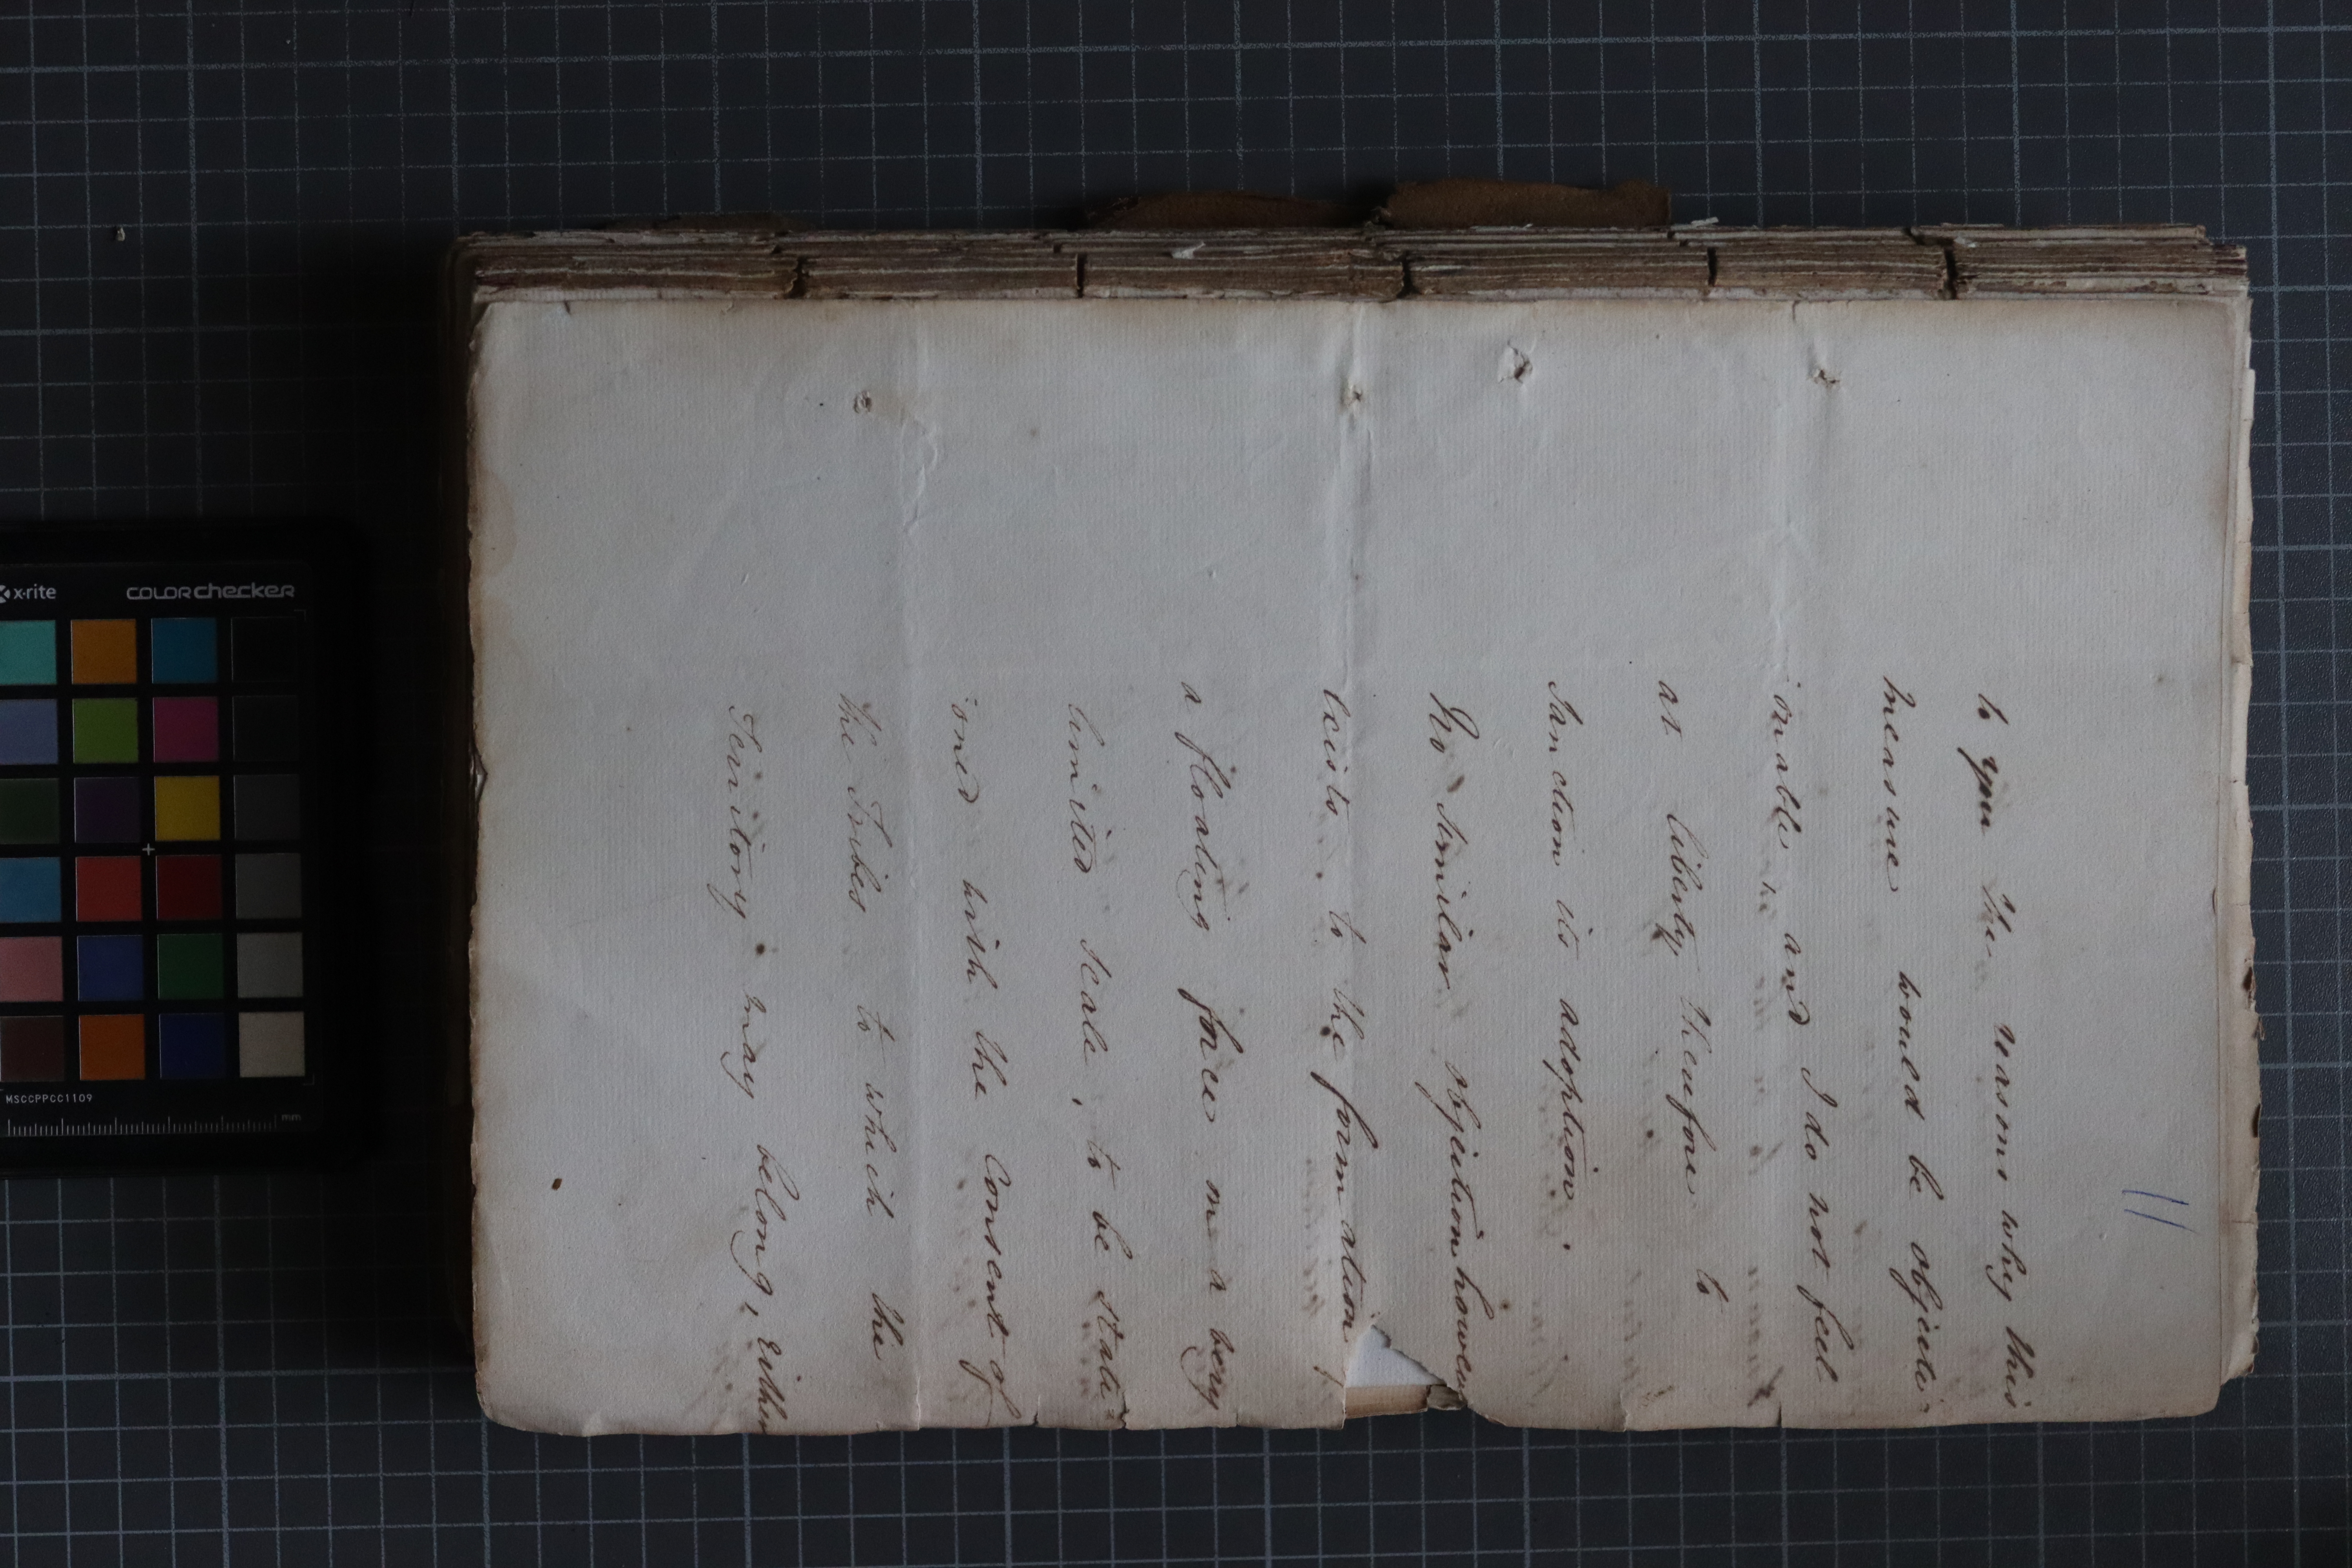 11
to you the reasons why this
measure would be objecti-
onable and I do not feel
at liberty therefore to
sanction its adoption.
No similar objection however
exists to the formation of
a floating force on a very
limited scale, to be stati-
oned with the Consent of
the Tribes to which the
Territory may belong, either
x-rite
colorchecker
MSCCPPCC1109
mm